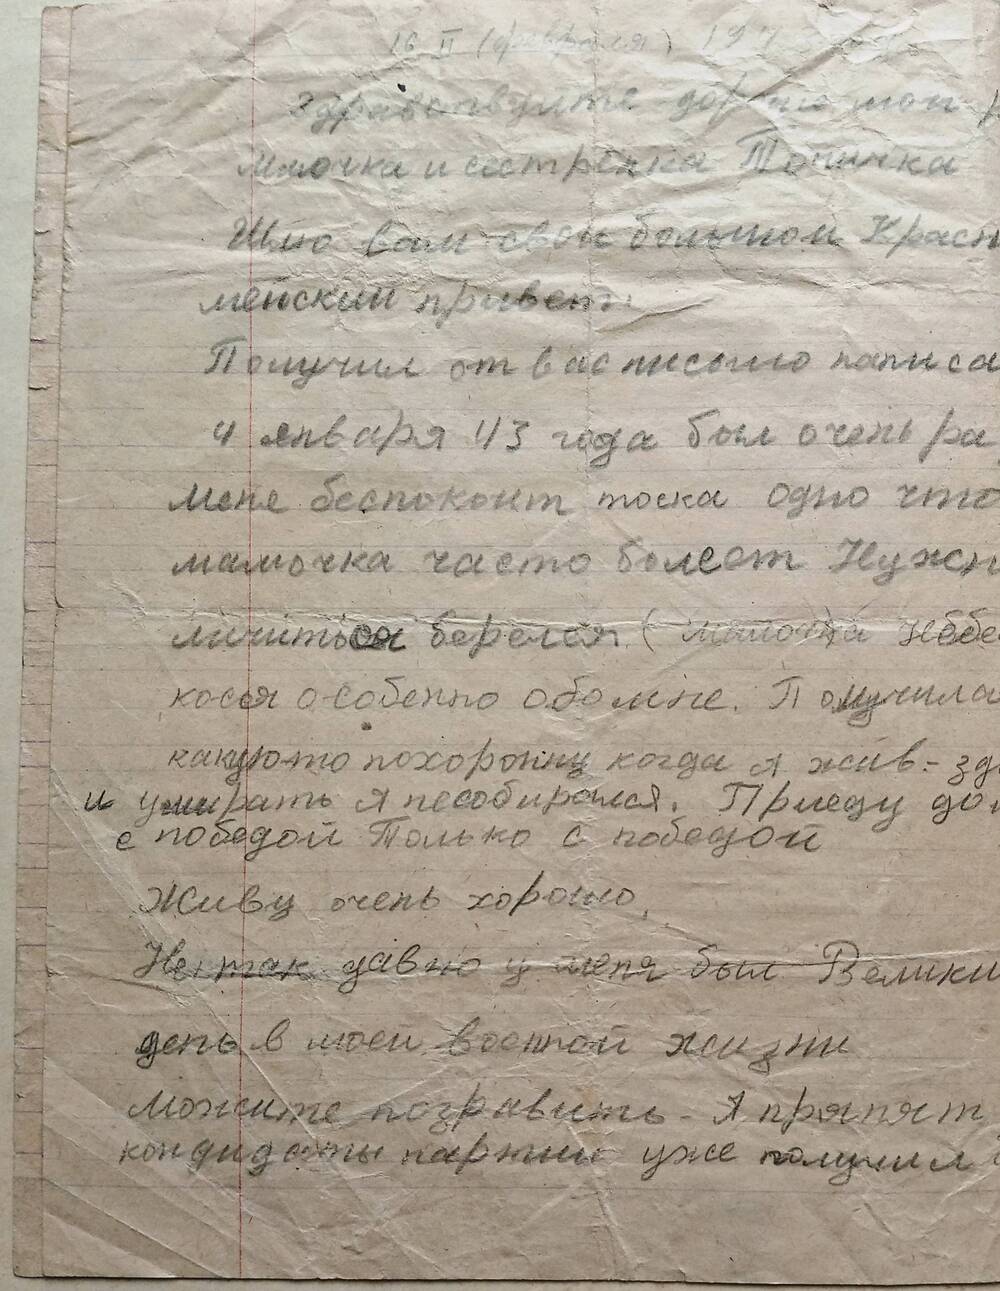 16 II (февраля) 194
Здравствуйте дорогие мои
Мамочка и сестренка Тонечка
Шлю вам свой большой Красн
мейский привет.
Получил от вас письмо написа
4 января 43 года был очень ра
меня беспокоит тоска одно что
мамочка часто болеет Нужн
личиться берегся (мамочка Небе
койся особенно обо мне. Получила
какуюто похоронну когда я жив-здо
и умирать я несобирался. Приеду до
с победой Только с победой
Живу очень хорошо,
Не так давно у меня был Велики
день в моей военной жизни
Можите поздравить - Я прянят
кондидаты партии уже получил